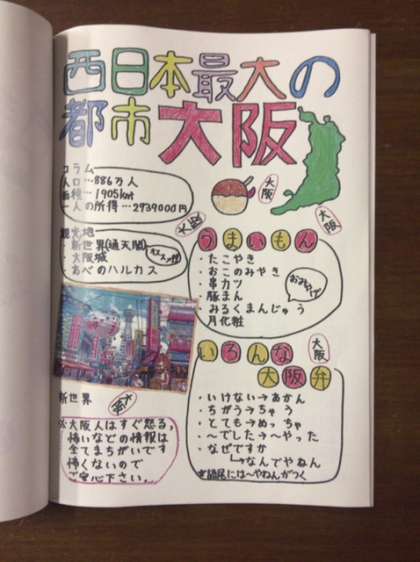 西日本最大の
都市 大阪
コラム
人口…886万人
面積…1905km²
一人の所得…2939000円
観光地
・新世界(通天閣)
・大阪城
・あべのハルカス
オススメ!!
大阪
大阪
大阪
うまいもん
・たこやき
・おこのみやき
・串カツ
・豚まん
・みるくまんじゅう
月化粧
おみやげ
新世界
大阪
※大阪人はすぐ怒る,
怖いなどの情報は
全てまちがいです
怖くないので
ご安心下さい.
いろんな
大阪弁
大阪
・いけない→あかん
・ちがう→ちゃう
・とても→めっちゃ
・〜でした→〜やった
・なぜですか
↳なんでやねん
語尾には〜やねんがつく